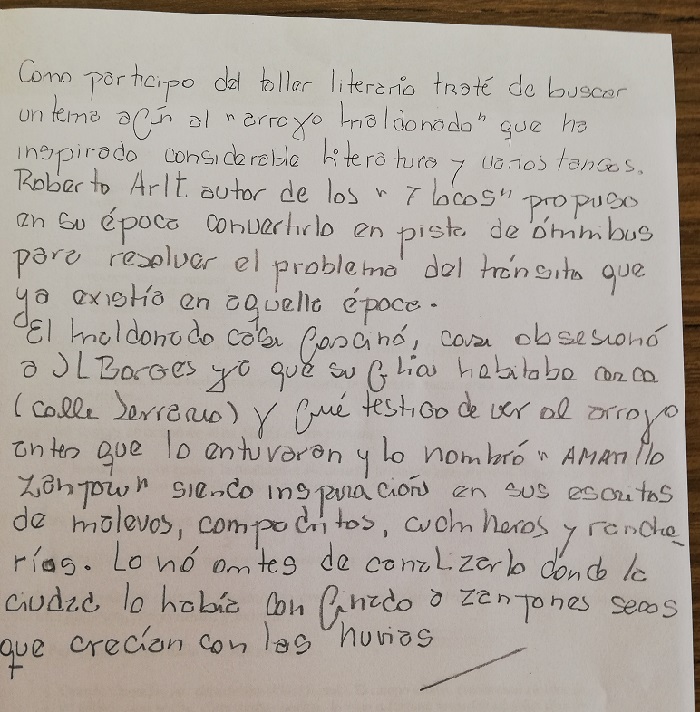 Como participo del taller literario traté de buscar
un tema afín al "arroyo maldonado" que ha
inspirado considerable literatura y varios tangos.
Roberto Arlt. autor de los "7 locos" propuso
en su época convertirlo en pista de ómnibus
para resolver el problema del tránsito que
ya existía en aquella época.
El maldonado casi fascinó, casi obsesionó
a JL Borges ya que su flia habitaba cerca
(calle Serrano) y fué testigo de ver al arroyo
antes que lo entuvaran y lo nombró "AMARillo
Zanjown" siendo inspiración en sus escritos
de malevos, compadritos, cuchilleros y ranche_
rías. Lo antes de canalizarlo donde la
ciudad lo había confinado a zanjones secos
que crecían con las lluvias